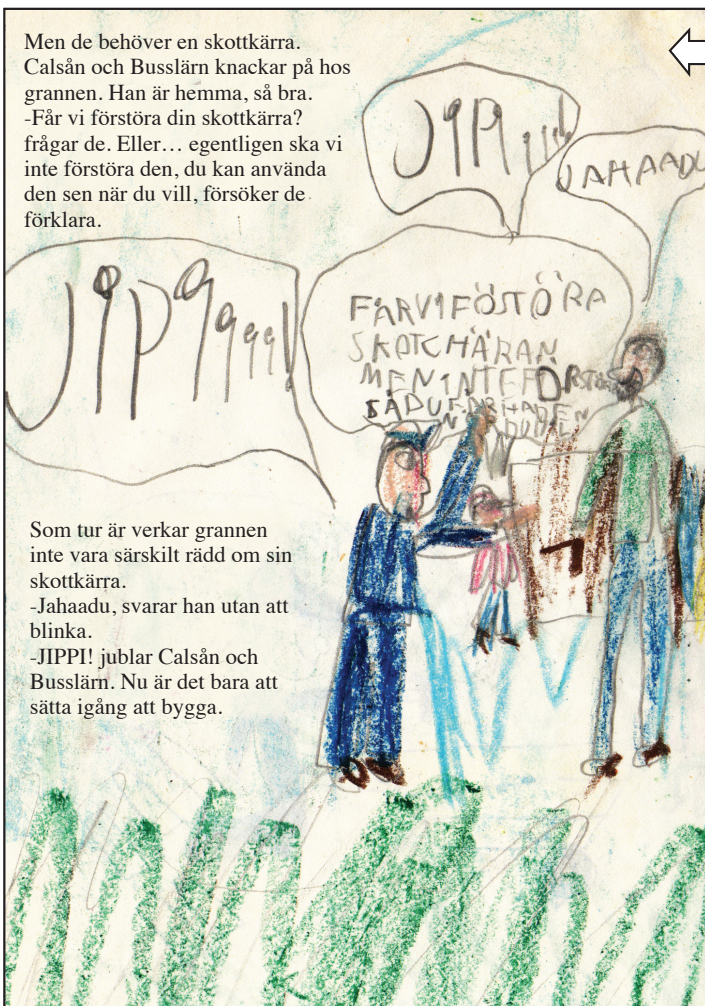 Men de behöver en skottkärra.
Calsån och Busslärn knackar på hos
grannen. Han är hemma, så bra.
-Får vi förstöra din skottkärra?
frågar de. Eller… egentligen ska vi
inte förstöra den, du kan använda
den sen när du vill, försöker de
förklara.
JIPIiiii!
JAHAADU
JIPIiiiii!
FÅRVIFÖSTÖRA
SKOTCHÄRAN
MENINTEFÖRSTÖRA
SÅDU
Som tur är verkar grannen
inte vara särskilt rädd om sin
skottkärra.
-Jahaadu, svarar han utan att
blinka.
-JIPPI! jublar Calsån och
Busslärn. Nu är det bara att
sätta igång att bygga.